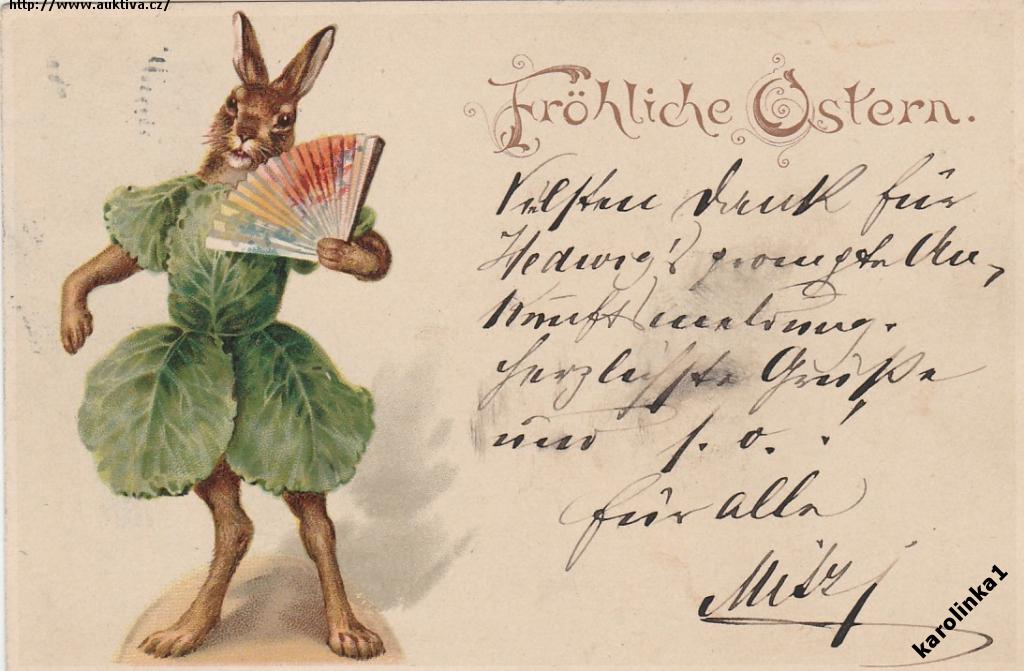 http://www.auktiva.cz/
Fröhliche Ostern.
Vielsten Dank für
Hedwig's prompte An-
kunftsmeldung.
Herzlichste Grüße
und s. o. !
für alle
Mitzj
karolinka1